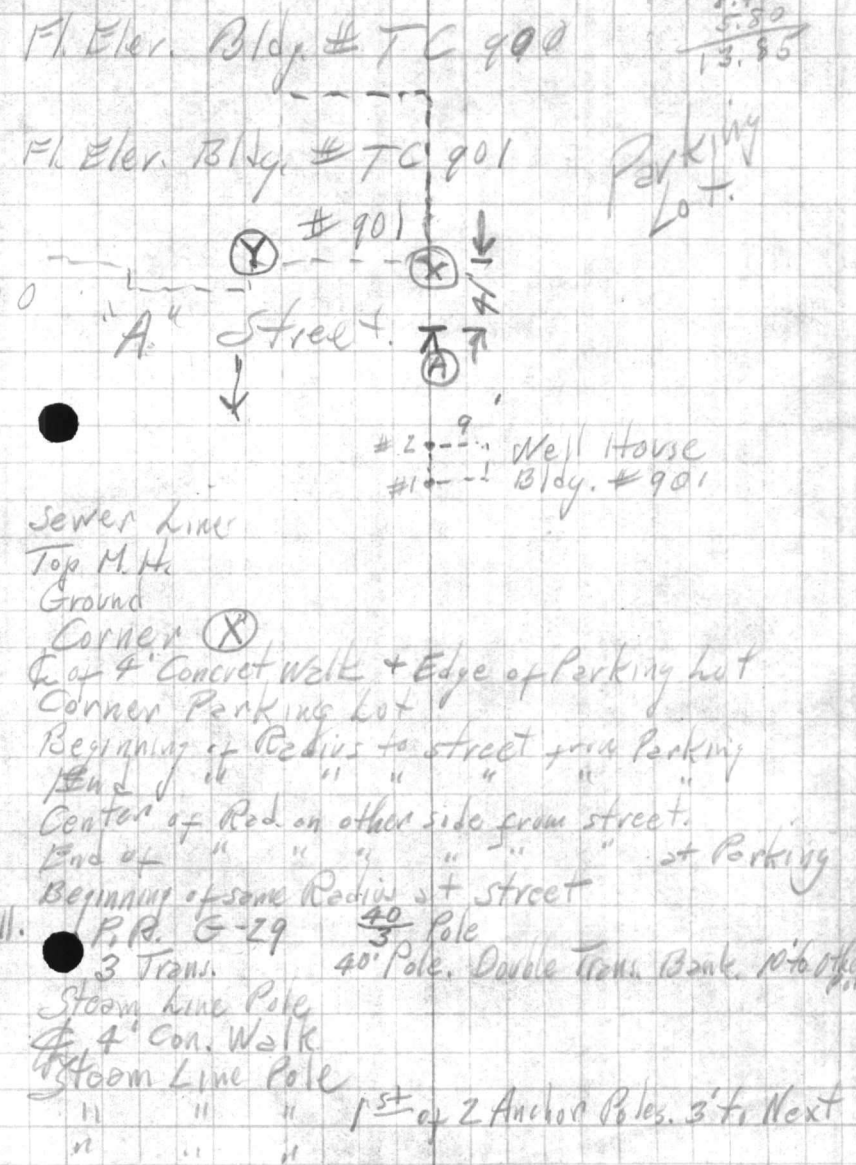 Fl. Elev. Bldg. # TC 900
5.80
13.85
Fl. Elev. Bldg. # TC 901
Parking
Lot.
# 901
Y
X
4'
0
"A" Street.
A
9'
# 2
Well House
#1
Bldg. # 901
Sewer Line
Top M. H.
Ground
Corner X
℄ of 4' Concret Walk + Edge of Parking Lot
Corner Parking Lot
Beginning of Radius to street from Parking
End " " " " " "
Center of Rad. on other side from street.
End of " " " " " " at Parking
Beginning of same Radius at street
P.P. G-29 40/3 Pole
3 Trans. 40' Pole. Double Trans. Bank. 10' to other
Steam Line Pole
℄ 4' Con. Walk
Steam Line Pole
" " " 1st of 2 Anchor Poles. 3' to Next
" " "